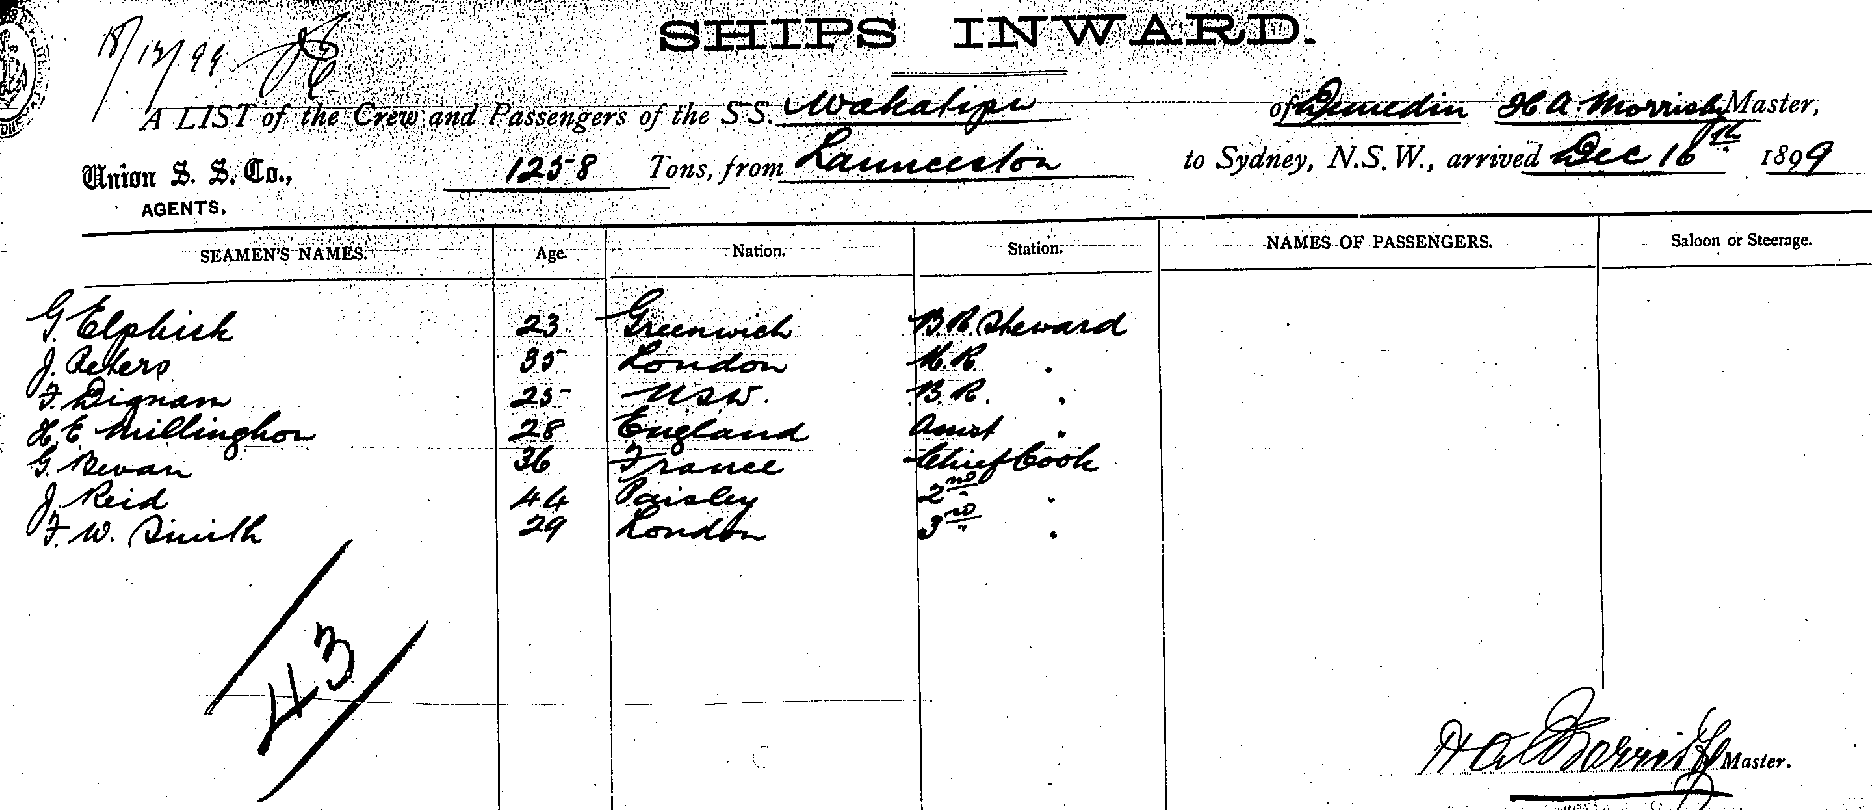 SHIPS INWARD.
18/12/99
A LIST of the Crew and Passengers of the S.S. Wakatipu of Dunedin H A Morrisby Master,
Union S. S. Co., 1258 Tons, from Launceston to Sydney, N.S.W., arrived Dec 16th 1899
AGENTS.
SEAMEN'S NAMES. Age. Nation. Station. NAMES OF PASSENGERS. Saloon or Steerage.
G. Elphick 23 Greenwich B.R. Steward
J. Peters 35 London M.R. "
F. Dignam 25 NSW. B.R. "
H E Millinghor 28 England Assist "
G. Bevan 36 France Chief Cook
J. Reid 44 Paisley 2nd "
F. W. Smith 29 London 3rd "
43
H A Morrisby Master.